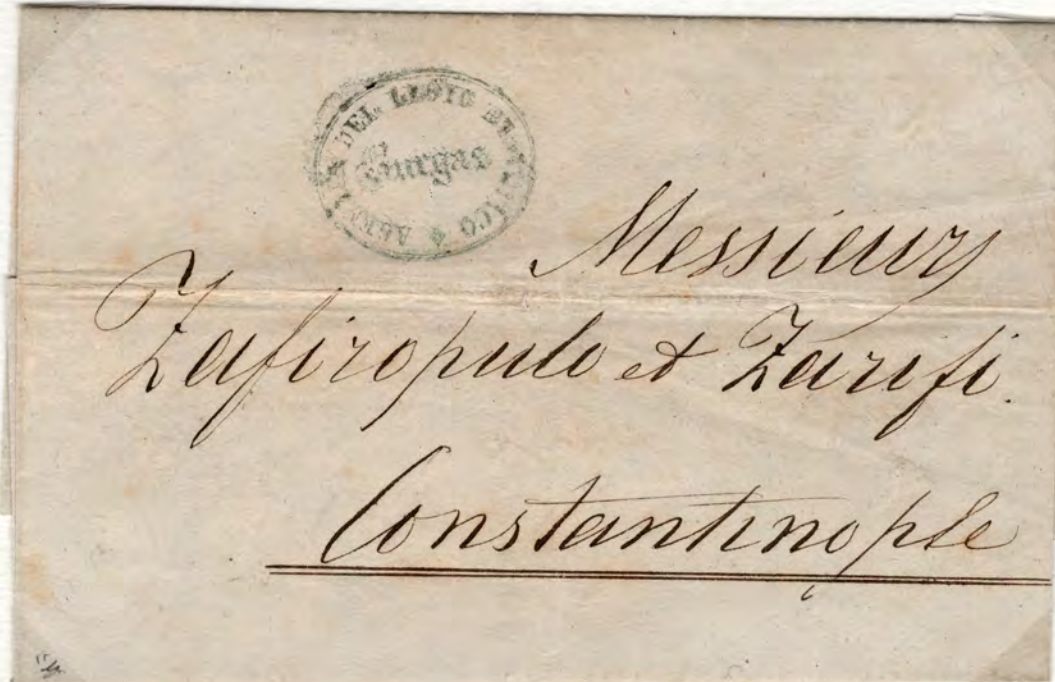 AGENZIA DEL LLOYD AUSTRIACO
Burgas
Messieurs
Zafiropulo et Zarifi.
Constantinople